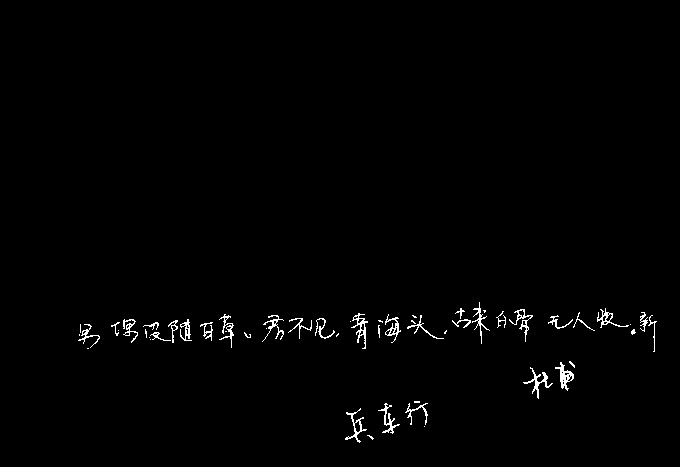 男埋没随百草。君不见,青海头,古来白骨无人收。新
杜甫
兵车行